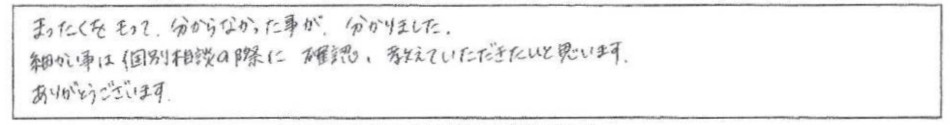 まったくをもって、分からなかった事が、分かりました。
細かい事は個別相談の際に確認、教えていただきたいと思います。
ありがとうございます。